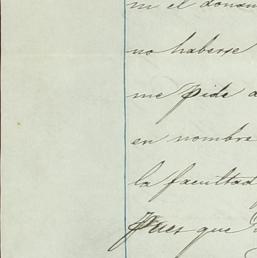 ni el donan
no haberse
me pide a
en nombre
la facultad
Pues que